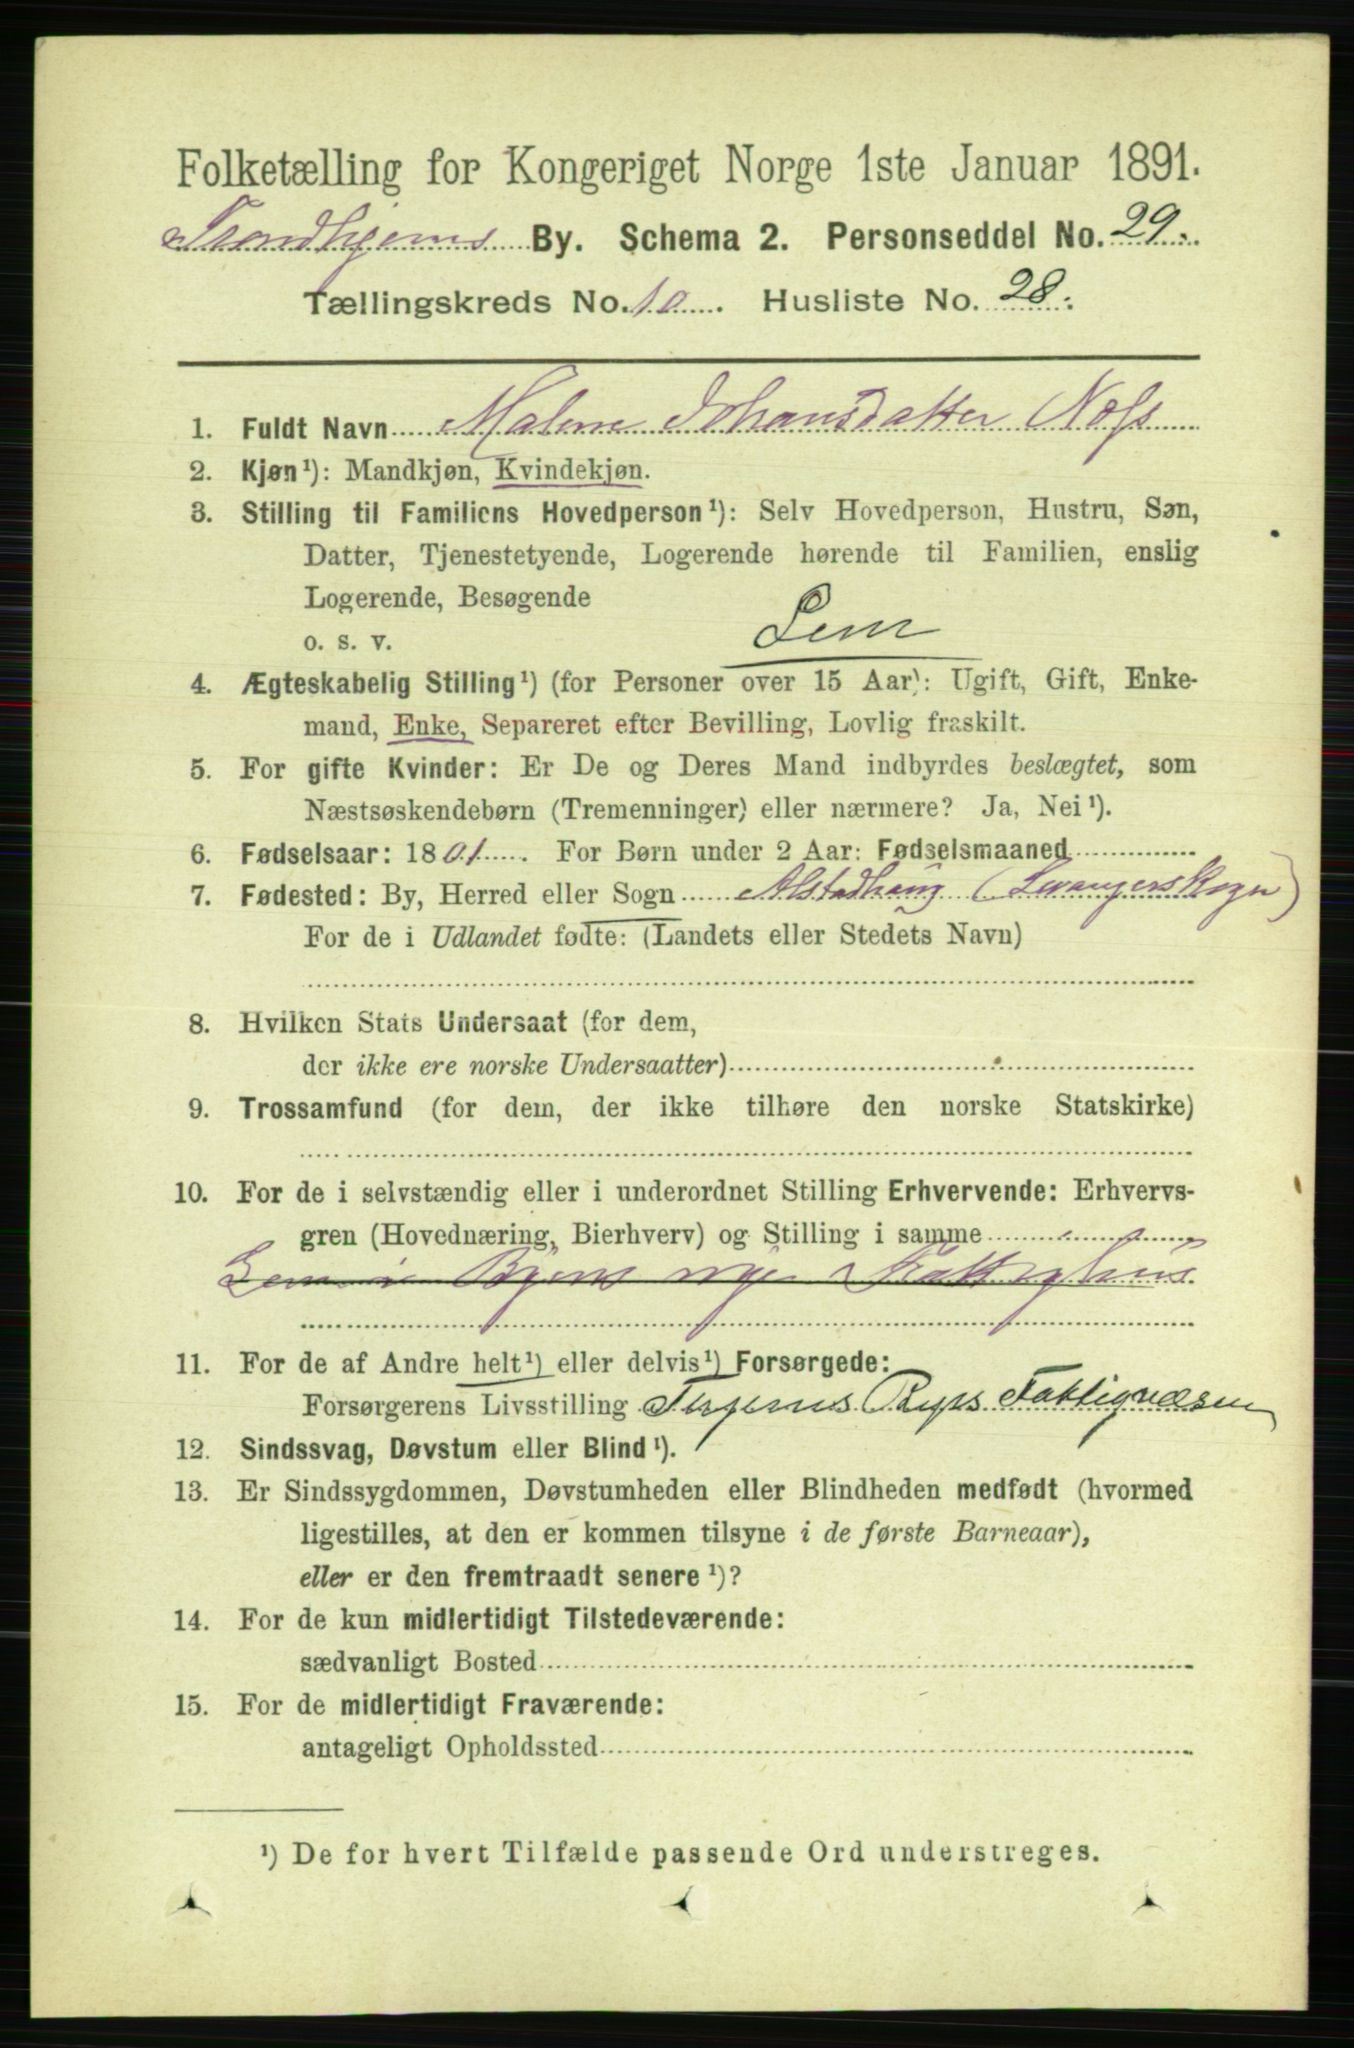 Folketælling for Kongeriget Norge 1ste Januar 1891.
Trondhjems By. Schema 2. Personseddel No. 29.
Tællingskreds No. 10. Husliste No. 28.
1. Fuldt Navn Malene Johansdatter Næss
2. Kjøn¹): Mandkjøn, Kvindekjøn.
3. Stilling til Familiens Hovedperson¹): Selv Hovedperson, Hustru, Søn,
Datter, Tjenestetyende, Logerende hørende til Familien, enslig
Logerende, Besøgende
o. s. v. Lem
4. Ægteskabelig Stilling¹) (for Personer over 15 Aar): Ugift, Gift, Enke-
mand, Enke, Separeret efter Bevilling, Lovlig fraskilt.
5. For gifte Kvinder: Er De og Deres Mand indbyrdes beslægtet, som
Næstsøskendebørn (Tremenninger) eller nærmere? Ja, Nei¹).
6. Fødselsaar: 1801. For Børn under 2 Aar: Fødselsmaaned
7. Fødested: By, Herred eller Sogn Alstadhaug (Levanger Skogn)
For de i Udlandet fødte: (Landets eller Stedets Navn)
8. Hvilken Stats Undersaat (for dem,
der ikke ere norske Undersaatter)
9. Trossamfund (for dem, der ikke tilhøre den norske Statskirke)
10. For de i selvstændig eller i underordnet Stilling Erhvervende: Erhvervs-
gren (Hovednæring, Bierhverv) og Stilling i samme
Lem i Byens nye Fattighus
11. For de af Andre helt¹) eller delvis¹) Forsørgede:
Forsørgerens Livsstilling Byes Fattigvæsen
12. Sindssvag, Døvstum eller Blind¹).
13. Er Sindssygdommen, Døvstumheden eller Blindheden medfødt (hvormed
ligestilles, at den er kommen tilsyne i de første Barneaar),
eller er den fremtraadt senere¹)?
14. For de kun midlertidigt Tilstedeværende:
sædvanligt Bosted
15. For de midlertidigt Fraværende:
antageligt Opholdssted
¹) De for hvert Tilfælde passende Ord understreges.